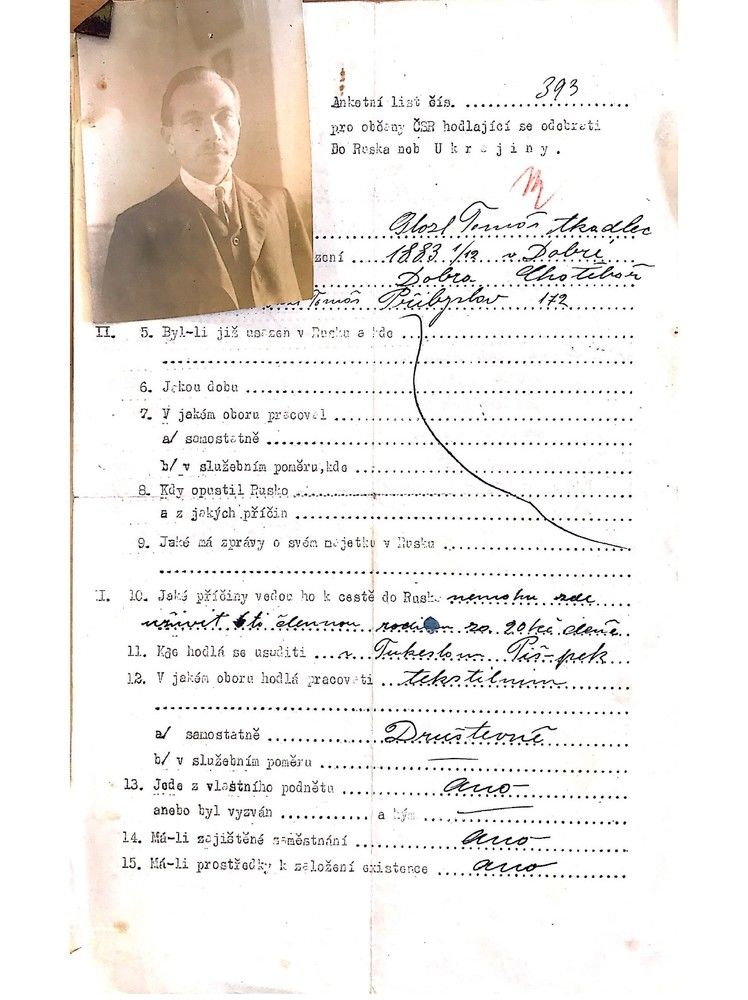 Anketní list čís. 393
pro občany ČSR hodlající se odebrati
Do Ruska neb Ukrajiny.
Tomáš tkadlec
zení 1883 1/12 v Dobré
Dobra Chotěboř
Tomáš Přibyslav 172
II. 5. Byl-li již usazen v Rusku a kde
6. Jakou dobu
7. V jakém oboru pracoval
a/ samostatně
b/ v služebním poměru, kde
8. Kdy opustil Rusko
a z jakých příčin
9. Jaké má zprávy o svém majetku v Rusku
II. 10. Jaké příčiny vedou ho k cestě do Ruska nemohu zde
uživit 6ti člennou rodinu za 20 kč denně
11. Kde hodlá se usaditi v Piš-pek
12. V jakém oboru hodlá pracovati tekstilním
a/ samostatně Družtevně
b/ v služebním poměru
13. Jede z vlastního podnětu ano
anebo byl vyzván a kým
14. Má-li zajištěné zaměstnání ano
15. Má-li prostředky k založení existence ano